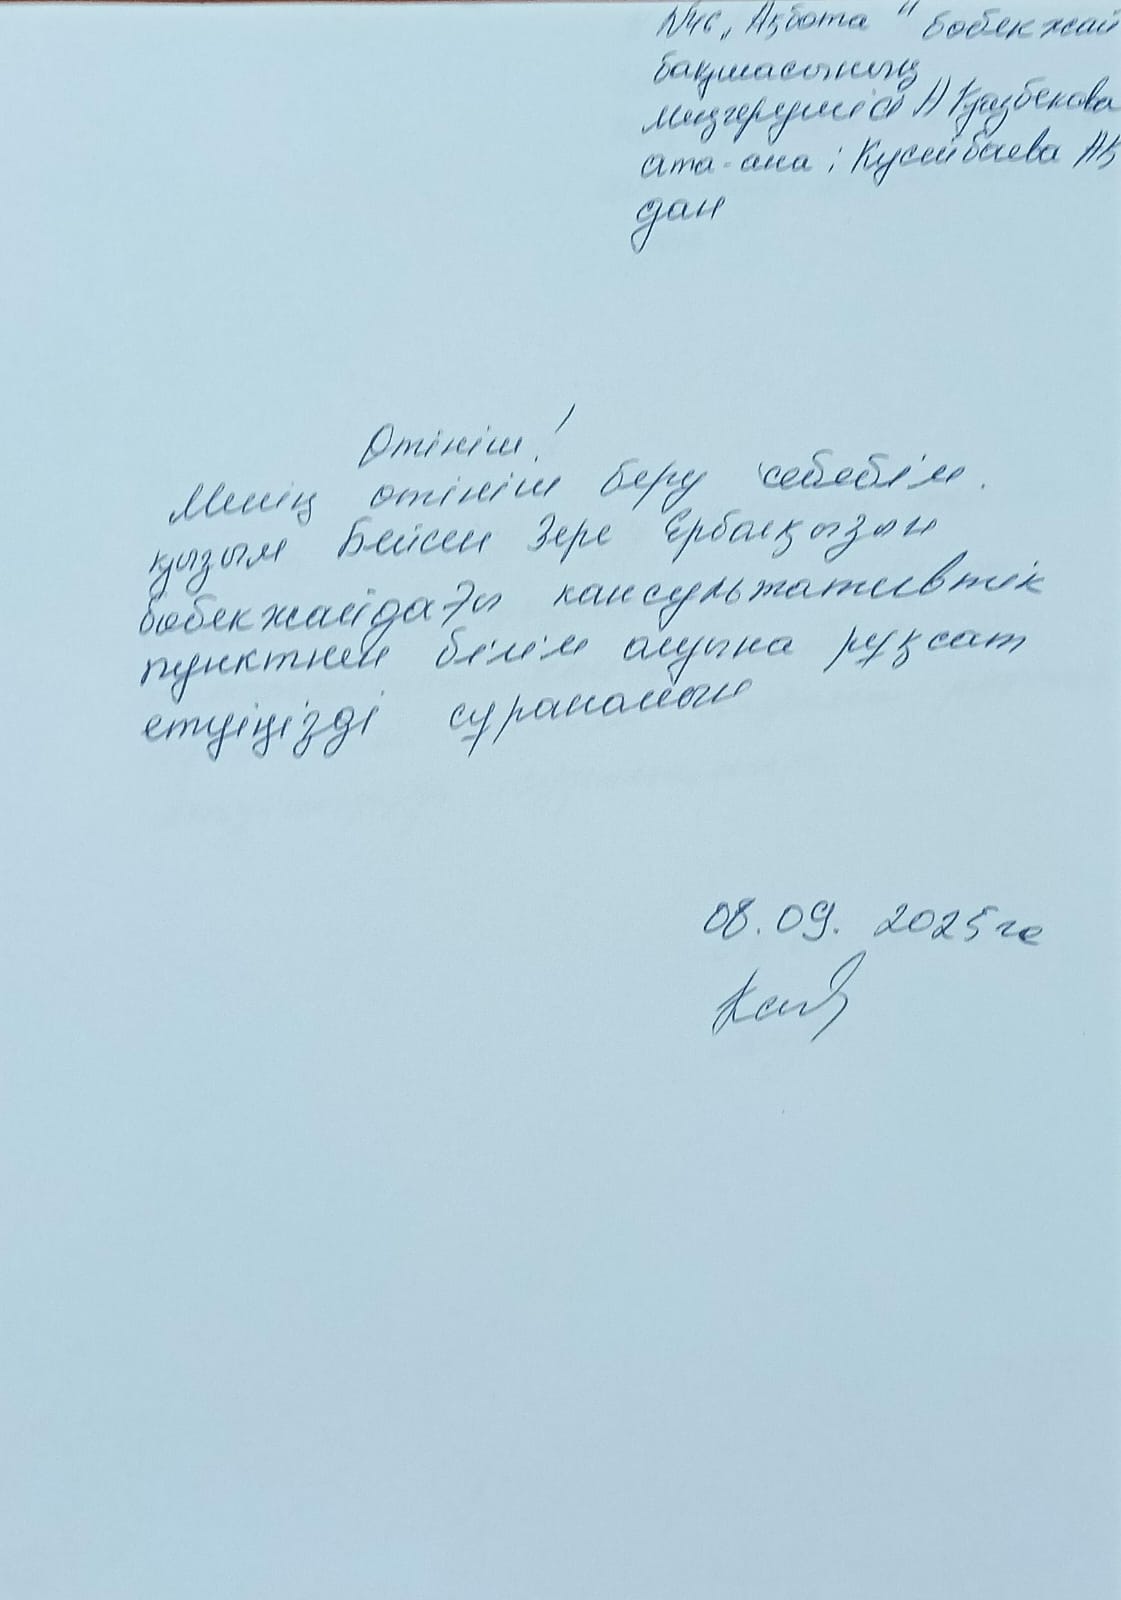 №46 „Ақбота" бөбекжай
бақшасының
меңгерушісі А Кузбекова
ата-ана: Кусейбаева Ақ
дан
Өтініш!
Менің өтініш беру себебім.
қызым Бейсен Зере Ербақызын
бөбекжайдағы кансультативтік
пунктнен білім алуына рұқсат
етуіңізді сұранамын
08.09. 2025 ге